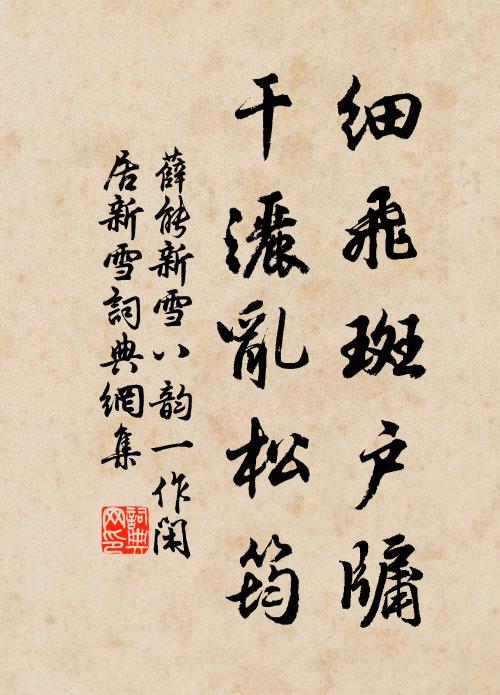 细飛斑户牖
干灑亂松筠
薛能新雪八韵一作閑
居新雪詞典網集
詞典
网印